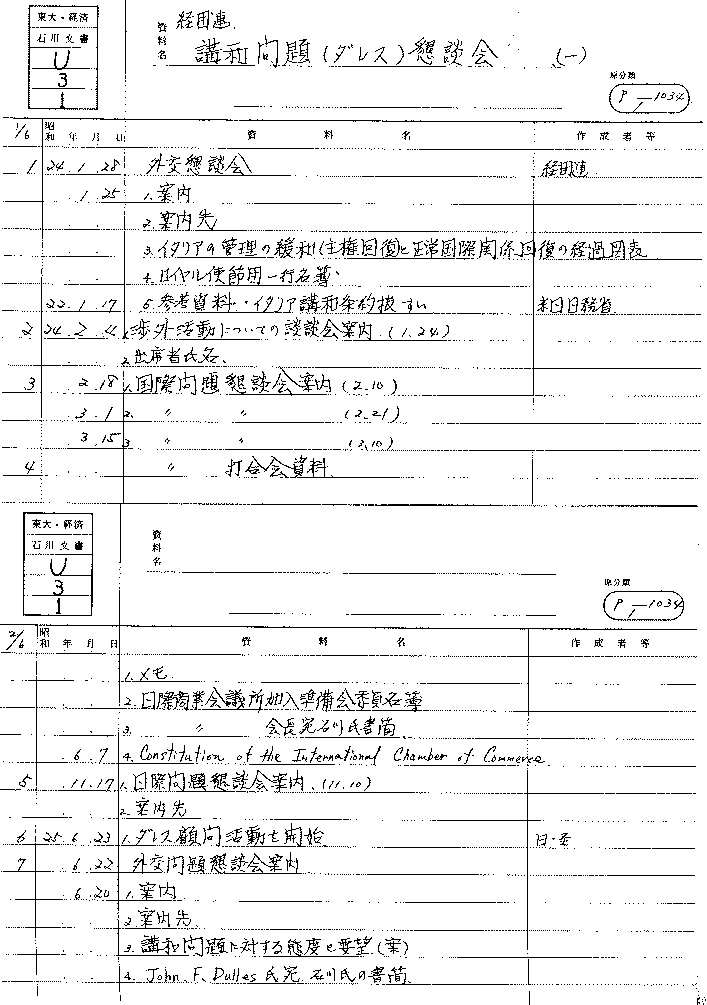 東大・経済
石川文書
U
3
1
資料名
経団連.
講和問題(ダレス)懇談会 (一)
原分類
P-1034
1/6 昭和 年 月 日 資料名 作成者等
1 24 . 1 . 28 外交懇談会 経団連
1 . 25 1. 案内
2. 案内先
3. イタリアの管理の緩和(主権回復)と正常国際関係回復の経過図表
4. ロイヤル使節用一行名簿
22 . 1 . 17 5. 参考資料・イタリア講和条約抜すい
2 24 . 2 . 4 1. 渉外活動についての談談会案内 (1.24)
2. 出席者氏名.
3 2 . 18 1. 国際問題懇談会案内 (2.10)
3 . 1 2. 〃 〃 (2.21)
3 . 15 3 〃 〃 (3.10)
4 〃 打合会資料.
東大・経済
石川文書
U
3
1
資料名
原分類
P-1034
2/6 昭和 年 月 日 資料名 作成者等
1. メモ
2. 国際商業会議所加入準備会委員名簿
3. 〃 会長宛石川氏書簡
. 6 . 7 4. Constitution of the International Chamber of Commerce
5 . 11 . 17 1. 国際問題懇談会案内. (11.10)
2. 案内先
6 25 . 6 . 23 1. ダレス顧問活動を開始
7 6 . 22 外交問題懇談会案内
6 . 20 1. 案内
2. 案内先
3. 講和問題に対する態度と要望(案)
4. John. F. Dulles 氏宛 石川氏の書簡